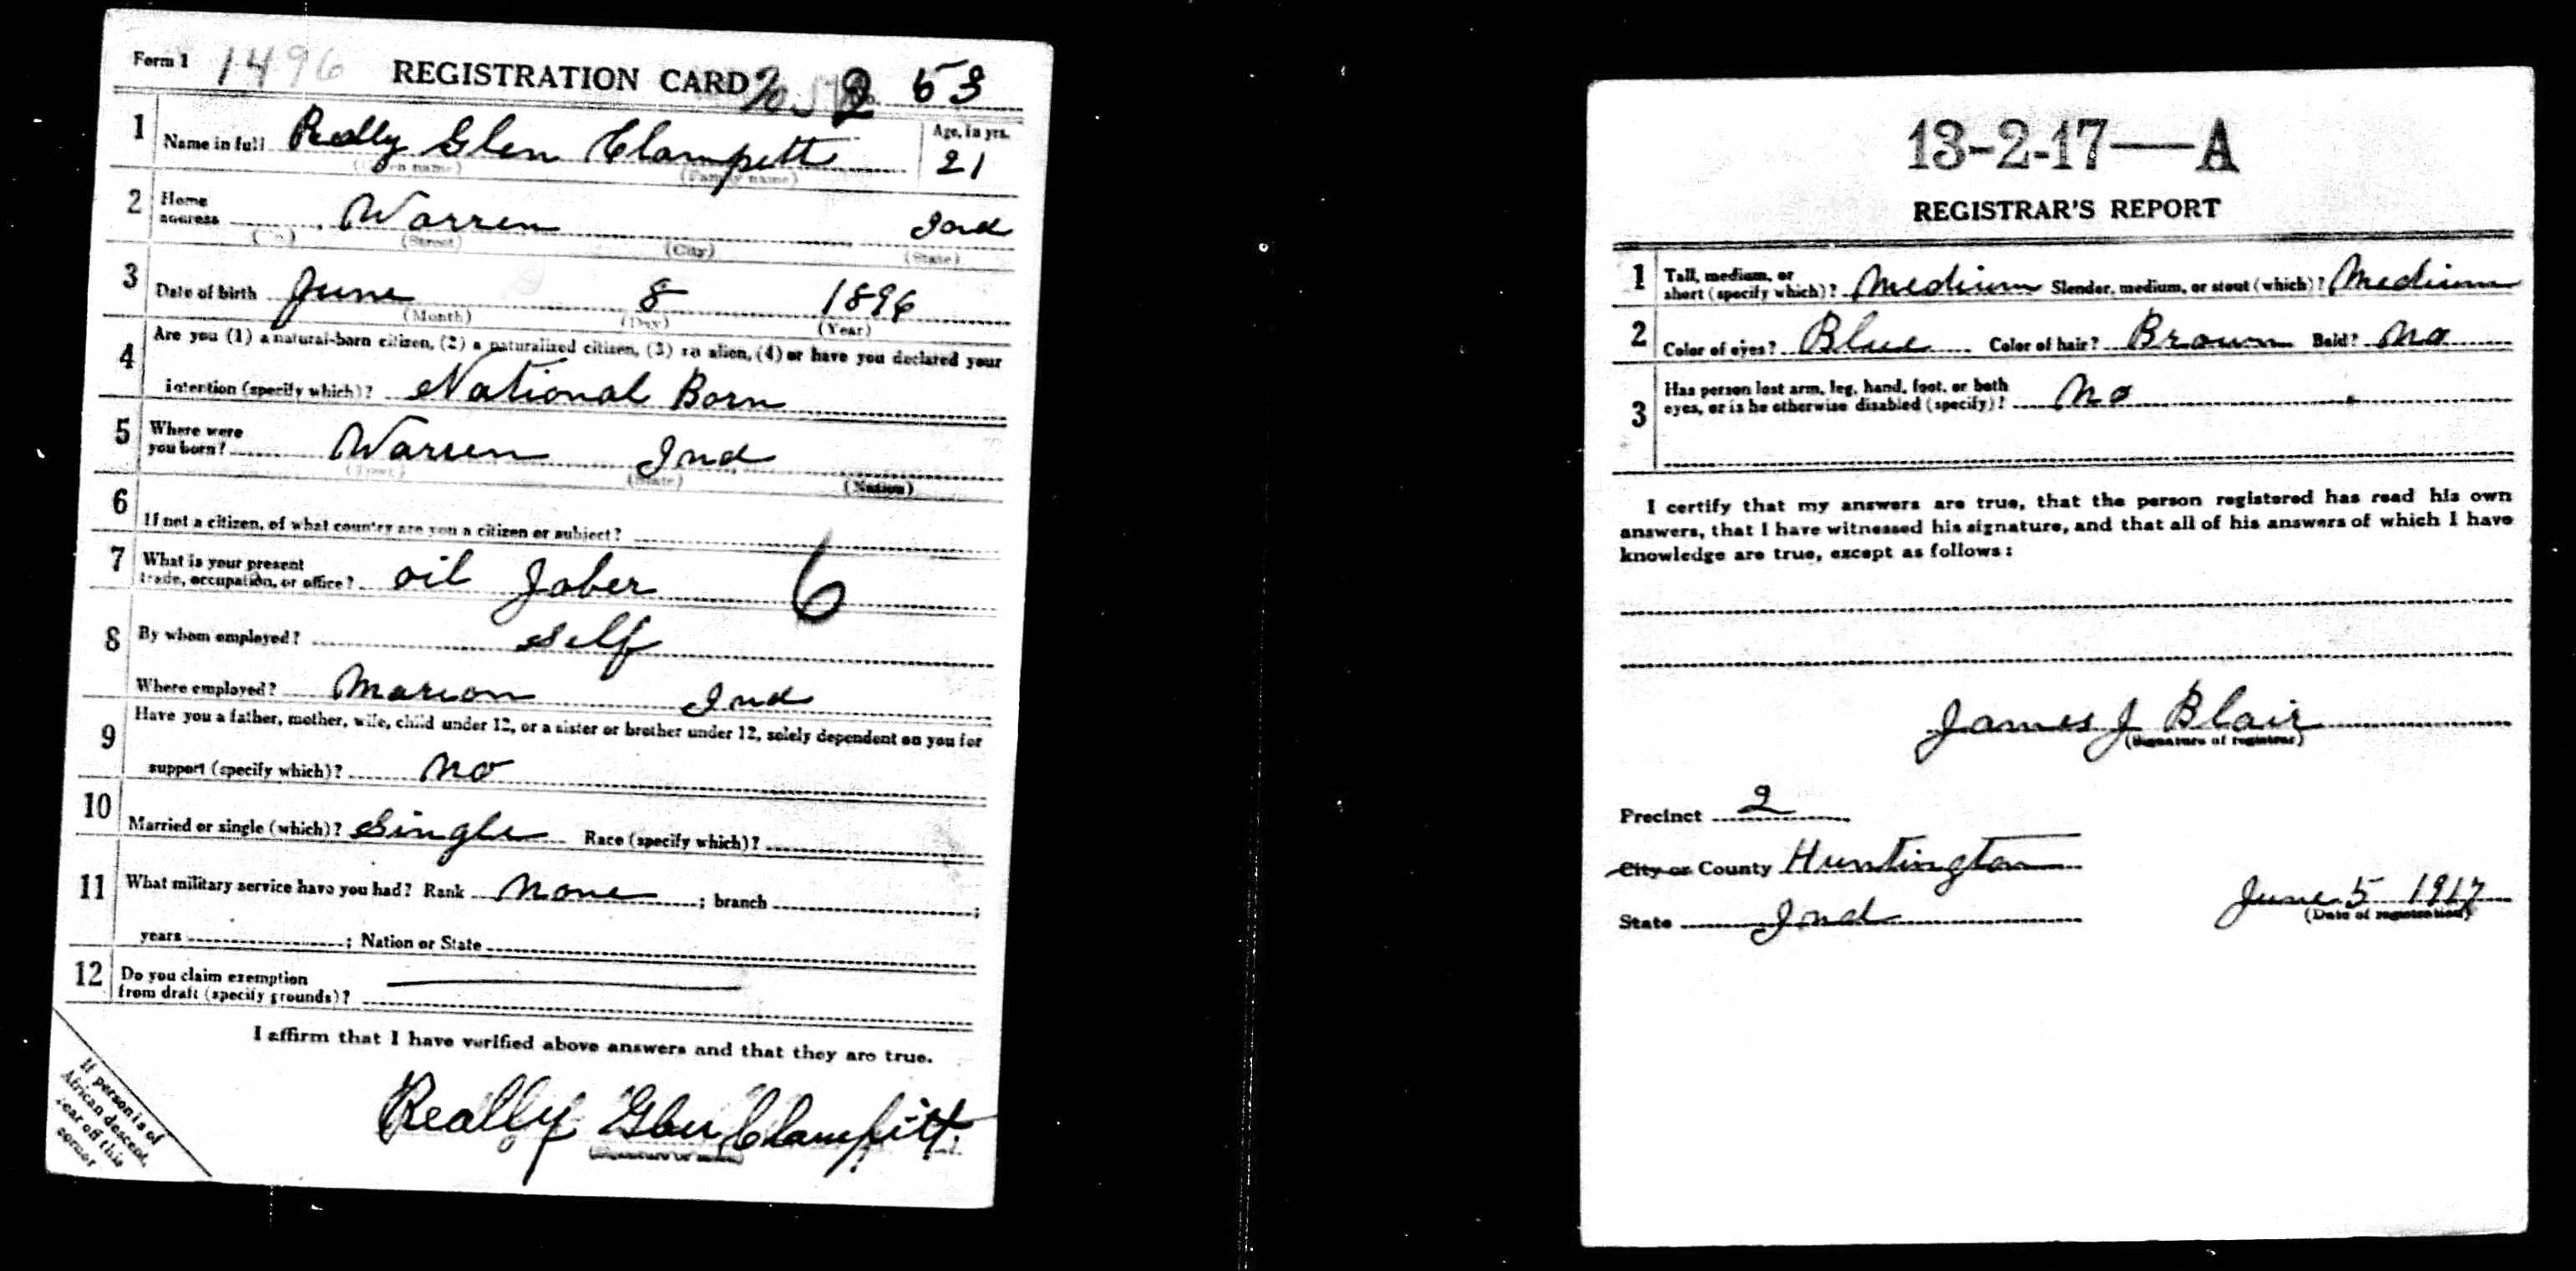 Form 1 1496 REGISTRATION CARD No. 2 53
1 Name in full Really Glen Clampett Age, in yrs.
(Given name) (Family name) 21
2 Home address Warren Ind
(No.) (Street) (City) (State)
3 Date of birth June 8 1896
(Month) (Day) (Year)
4 Are you (1) a natural-born citizen, (2) a naturalized citizen, (3) an alien, (4) or have you declared your
intention (specify which)? National Born
5 Where were
you born? Warren Ind
(Town) (State) (Nation)
6 If not a citizen, of what country are you a citizen or subject?
7 What is your present
trade, occupation, or office? oil Jober 6
8 By whom employed? self
Where employed? Marion Ind
9 Have you a father, mother, wife, child under 12, or a sister or brother under 12, solely dependent on you for
support (specify which)? no
10 Married or single (which)? Single Race (specify which)?
11 What military service have you had? Rank none ; branch ;
years ; Nation or State
12 Do you claim exemption
from draft (specify grounds)?
I affirm that I have verified above answers and that they are true.
Really Glen Clampitt
(Signature or mark)
If person is of
African descent,
tear off this
corner
13-2-17—A
REGISTRAR'S REPORT
1 Tall, medium, or
short (specify which)? Medium Slender, medium, or stout (which)? Medium
2 Color of eyes? Blue Color of hair? Brown Bald? No
3 Has person lost arm, leg, hand, foot, or both
eyes, or is he otherwise disabled (specify)? No
I certify that my answers are true, that the person registered has read his own
answers, that I have witnessed his signature, and that all of his answers of which I have
knowledge are true, except as follows:
James J Blair
(Signature of registrar)
Precinct 2
City or County Huntington
State Ind June 5 1917
(Date of registration)